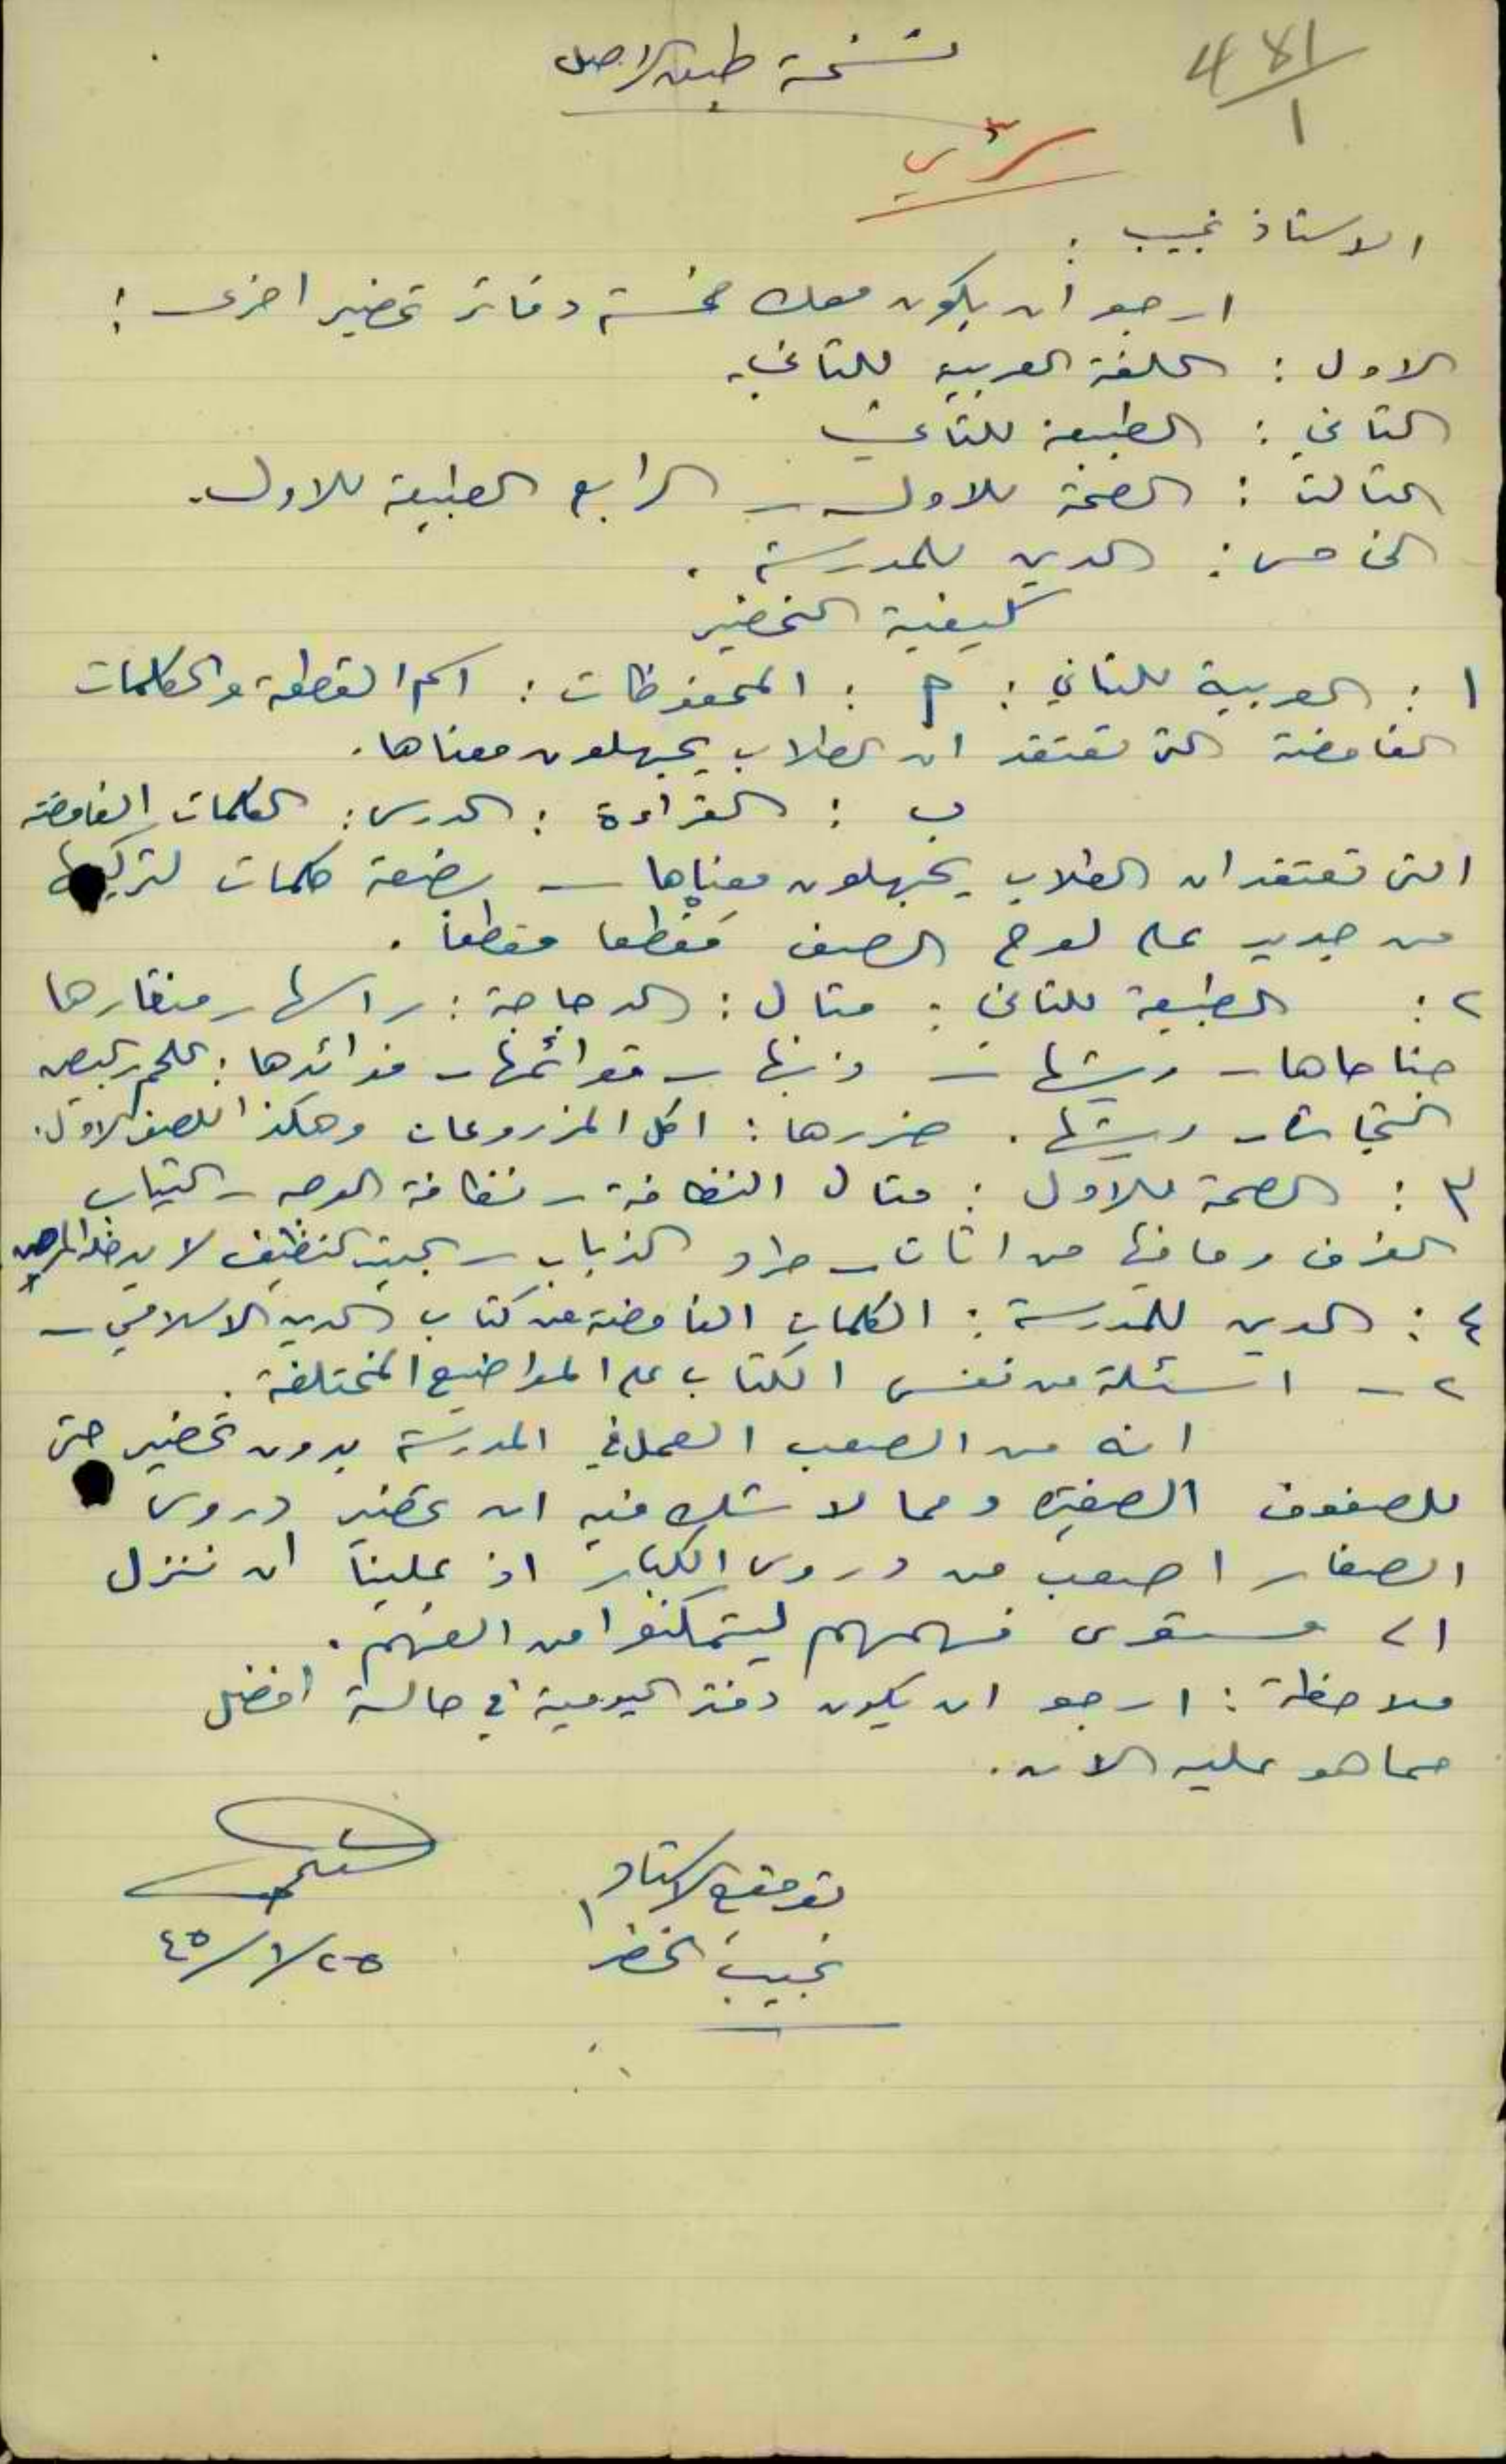 481/1
نسخة طبق الاصل
سري
الاستاذ نجيب :
ارجو ان يكون معك خمسة دفاتر تحضير اخرى :
الاول : اللغة العربية للثاني.
الثاني : الطبيعة للثاني
الثالث : الصحة للاول - الرابع الطبيعة للاول.
الخامس : الدين للمدرسة .
كيفية التحضير
١ : العربية للثاني : أ : المحفوظات : اسم القطعة والكلمات
الغامضة التي تعتقد ان الطلاب يجهلون معناها .
ب : القراءة : الدرس : الكلمات الغامضة
التي تعتقد ان الطلاب يجهلون معناها - بضعة كلمات لتركيبها
من جديد على لوح الصف مقطعا مقطعاً .
٢ : الطبيعة للثاني : مثال : الدجاجة : راسها - منقارها
جناحاها - ريشها - ذنبها - قوائمها - فوائدها : اللحم - البيض
التجارة - ريشها . ضررها : اكل المزروعات وهكذا للصف الاول.
٣ : الصحة للاول : مثال النظافة - نظافة الوجه - الثياب
الغرف وما فيها من اثاث - طرد الذباب - البيت النظيف لا يدخله المرض
٤ : الدين للمدرسة : الكلمات الغامضة من كتاب الدين الاسلامي -
٢ - اسئلة من نفس الكتاب على المواضيع المختلفة .
انه من الصعب العمل في المدرسة بدون تحضير حتى
للصفوف الصغيرة ومما لا شك فيه ان تحضير دروس
الصغار اصعب من دروس الكبار اذ علينا ان ننزل
الى مستوى فهمهم ليتمكنوا من الفهم .
ملاحظة : ارجو ان يكون دفتر اليومية في حالة افضل
مما هو عليه الان .
توقيع الاستاذ
نجيب الخضرا
٢٥/١/٤٥